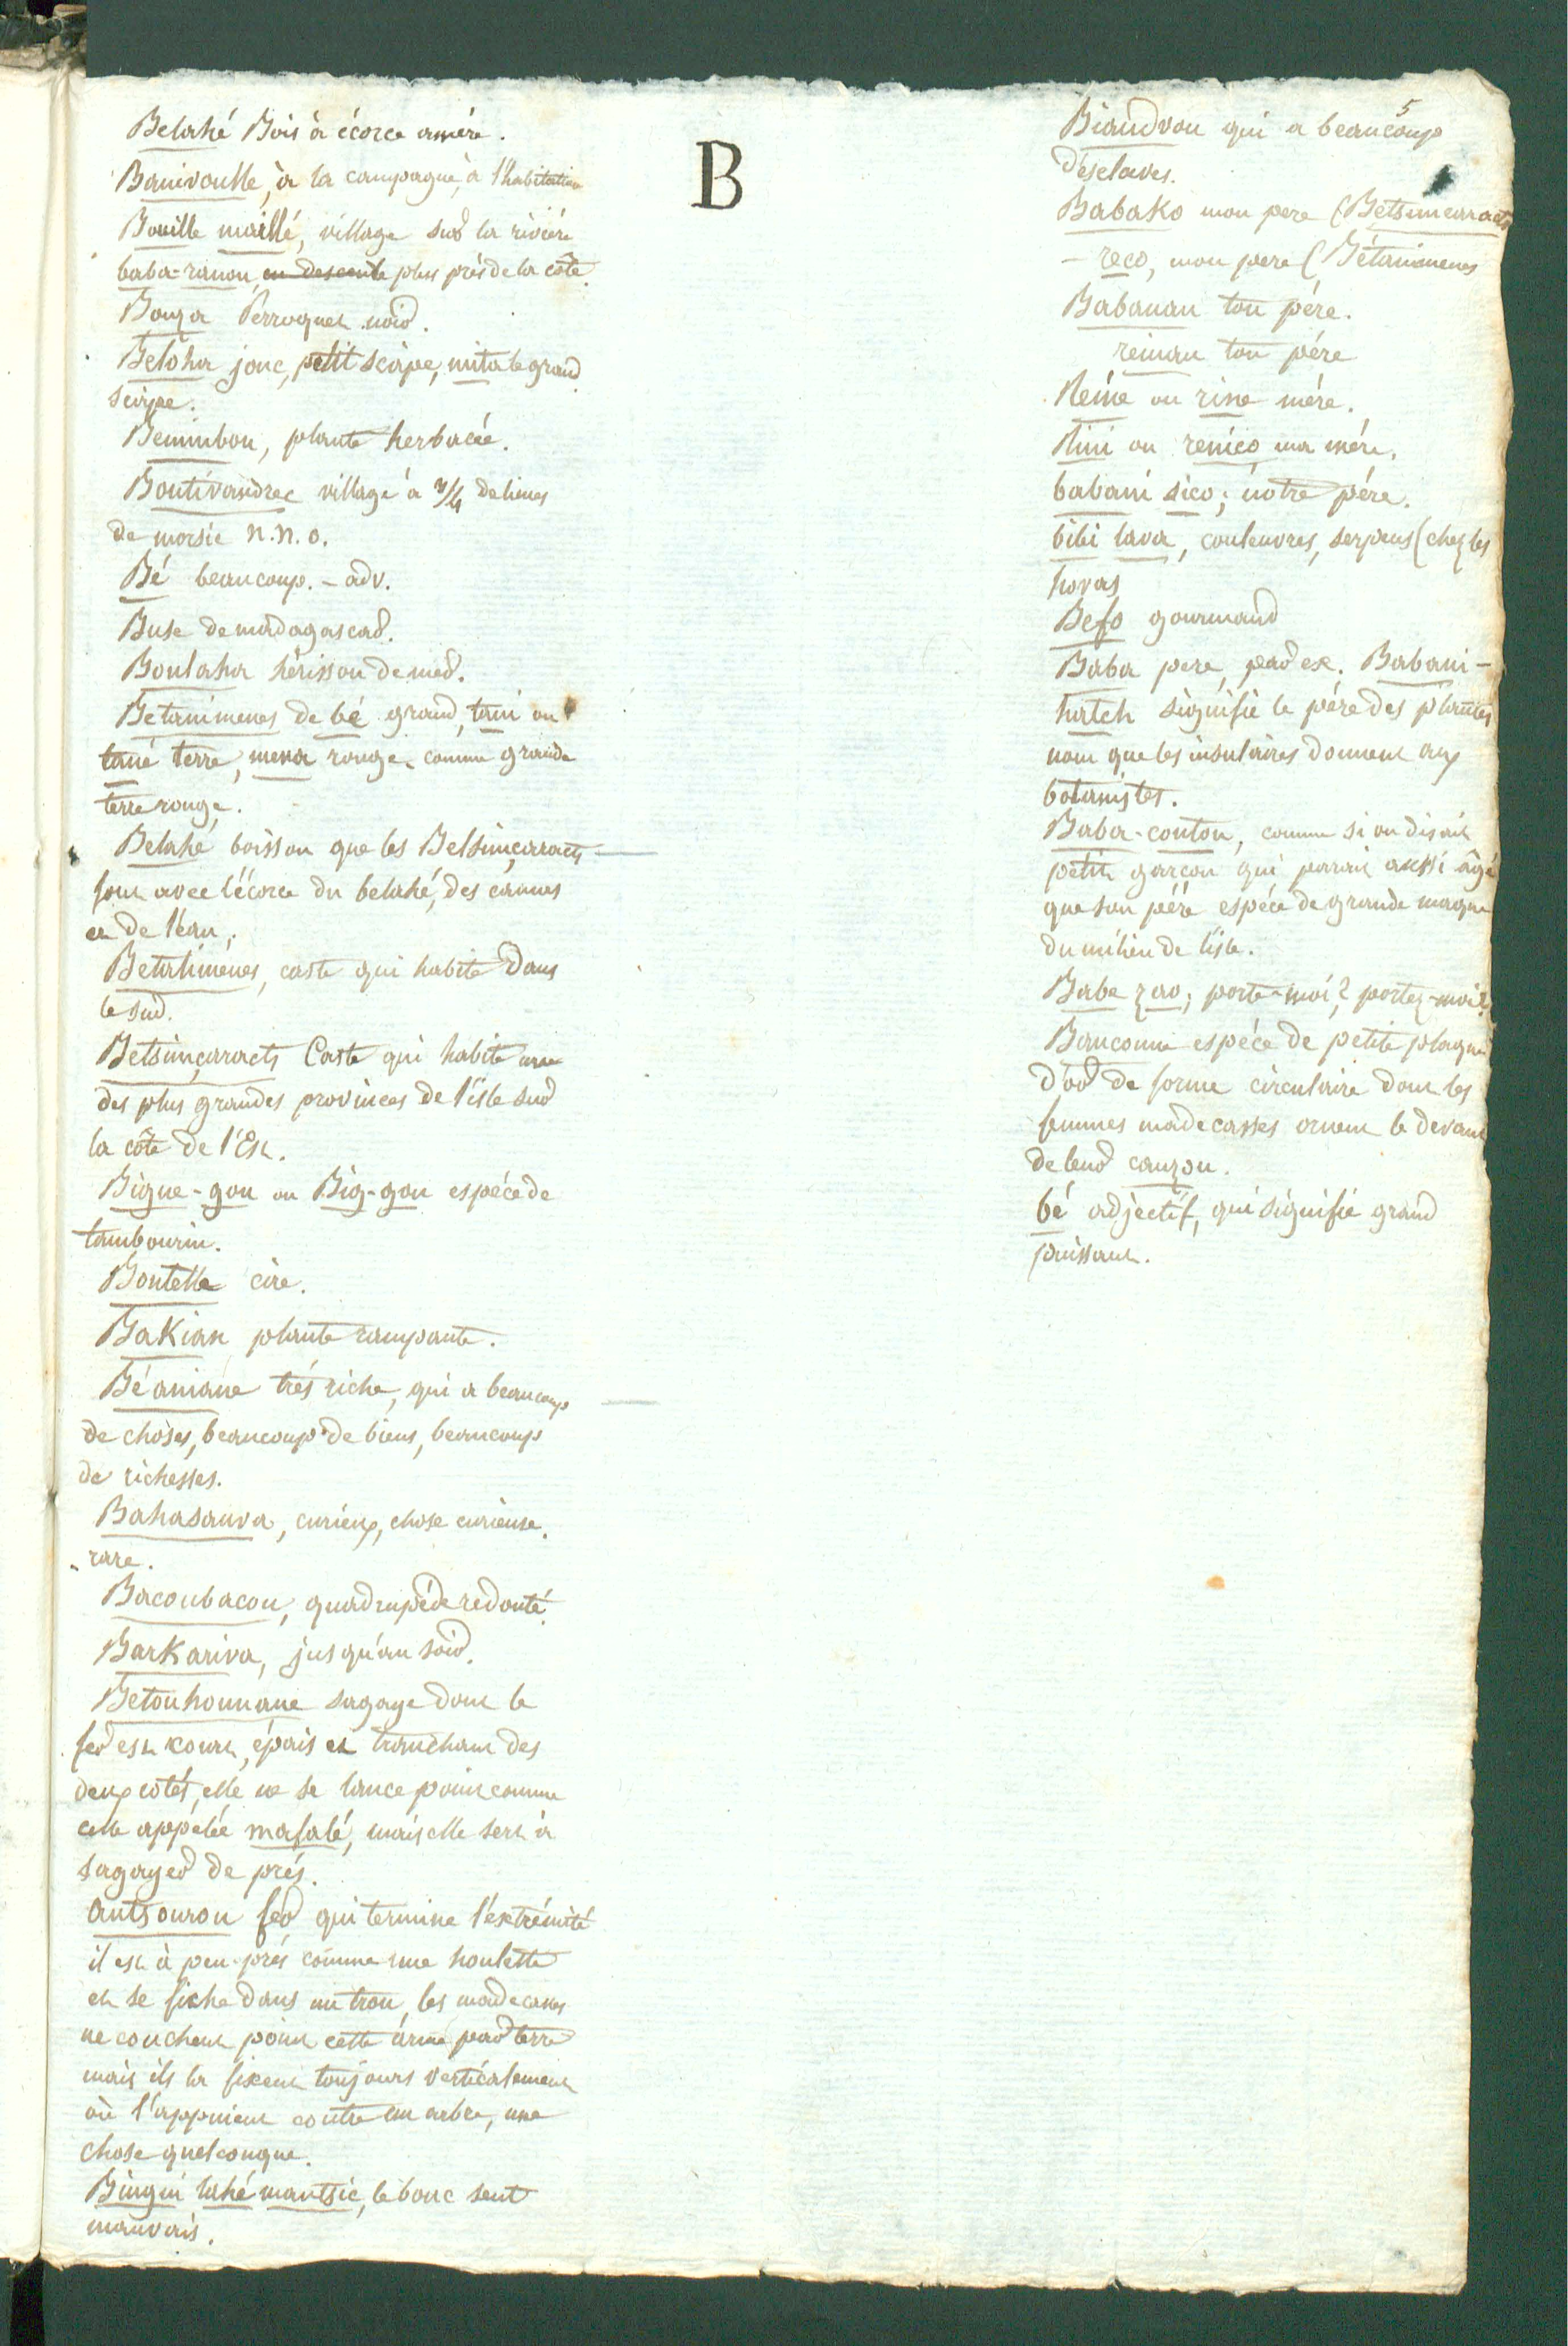 B
Belahé Bois à écorce amére.
Banivoulle, à la campagne, à l'habitation
Bouille maillé, village sur la riviére
baba-ranou, en descente plus prés de la côte.
Bouza Perroquet noir.
Beloha jonc, petit scirpe, mita le grand
scirpe.
Bemimbou, plante herbacée.
Boutivandrec village à 3/4 de lieues
de morsie n.n.o.
Bé beaucoup. - adv.
Buse de madagascar.
Boulaha hérisson de mer.
Betanimenes de bé grand, tani ou
tané terre, mena rouge, comme grande
terre rouge.
Belahé boisson que les Betsimçaracts
font avec l'écorce du belahé, des cannes
et de l'eau.
Betalimênes, caste qui habite dans
le sud.
Betsimçaracts Caste qui habite une
des plus grandes provinces de l'isle sur
la côte de l'Est.
Bigue-gou ou Big-gou espéce de
tambourin.
Boutelle cire.
Bakian plante rampante.
Béaniane trés riche, qui a beaucoup
de choses, beaucoup de biens, beaucoup
de richesses.
Bahasauva, curieux, chose curieuse,
rare.
Bacoubacou, quadrupéde redouté.
Barkariva, jusqu'au soir.
Betouhounane sagaye dont le
fer est court, épais et tranchant des
deux cotés, elle ne se lance point comme
celle appélée mafalé, mais elle sert à
sagayer de prés.
antsourou fer qui termine l'extrémité
il est à peu prés comme une houlette
et se fiche dans un trou, les madecasses
ne couchent point cette arme par terre
mais ils la fixent toujours verticalement
où l'appuient contre un arbre, une
chose quelconque.
Bingui lahé mantsic, le bouc sent
mauvais.
5
Biandvou qui a beaucoup
d'esclaves.
Babako mon pere (Betsimcaracts
- reco, mon pere (Bétanimenes
Babanau ton pére.
reinau ton pére
Reine ou rine mére.
Rini ou renico ma mére.
babani sico; notre pére.
bibi lava, couleuvres, serpens (chez les
hovas
Befo gourmand
Baba pere, par ex. Babani-
hatch signifie le pére des plantes
nom que les insulaires donnent aux
botanistes.
Baba-coutou, comme si on disait
petit garçon qui parait aussi âgé
que son pére espéce de grande maque
du milieu de l'isle.
Babe zao; porte-moi? portez-moi?
Bancoune espéce de petite plaque
d'or de forme circulaire dont les
femmes madecasses ornent le devant
de leur canzou.
bé adjectif, qui signifie grand
puissant.